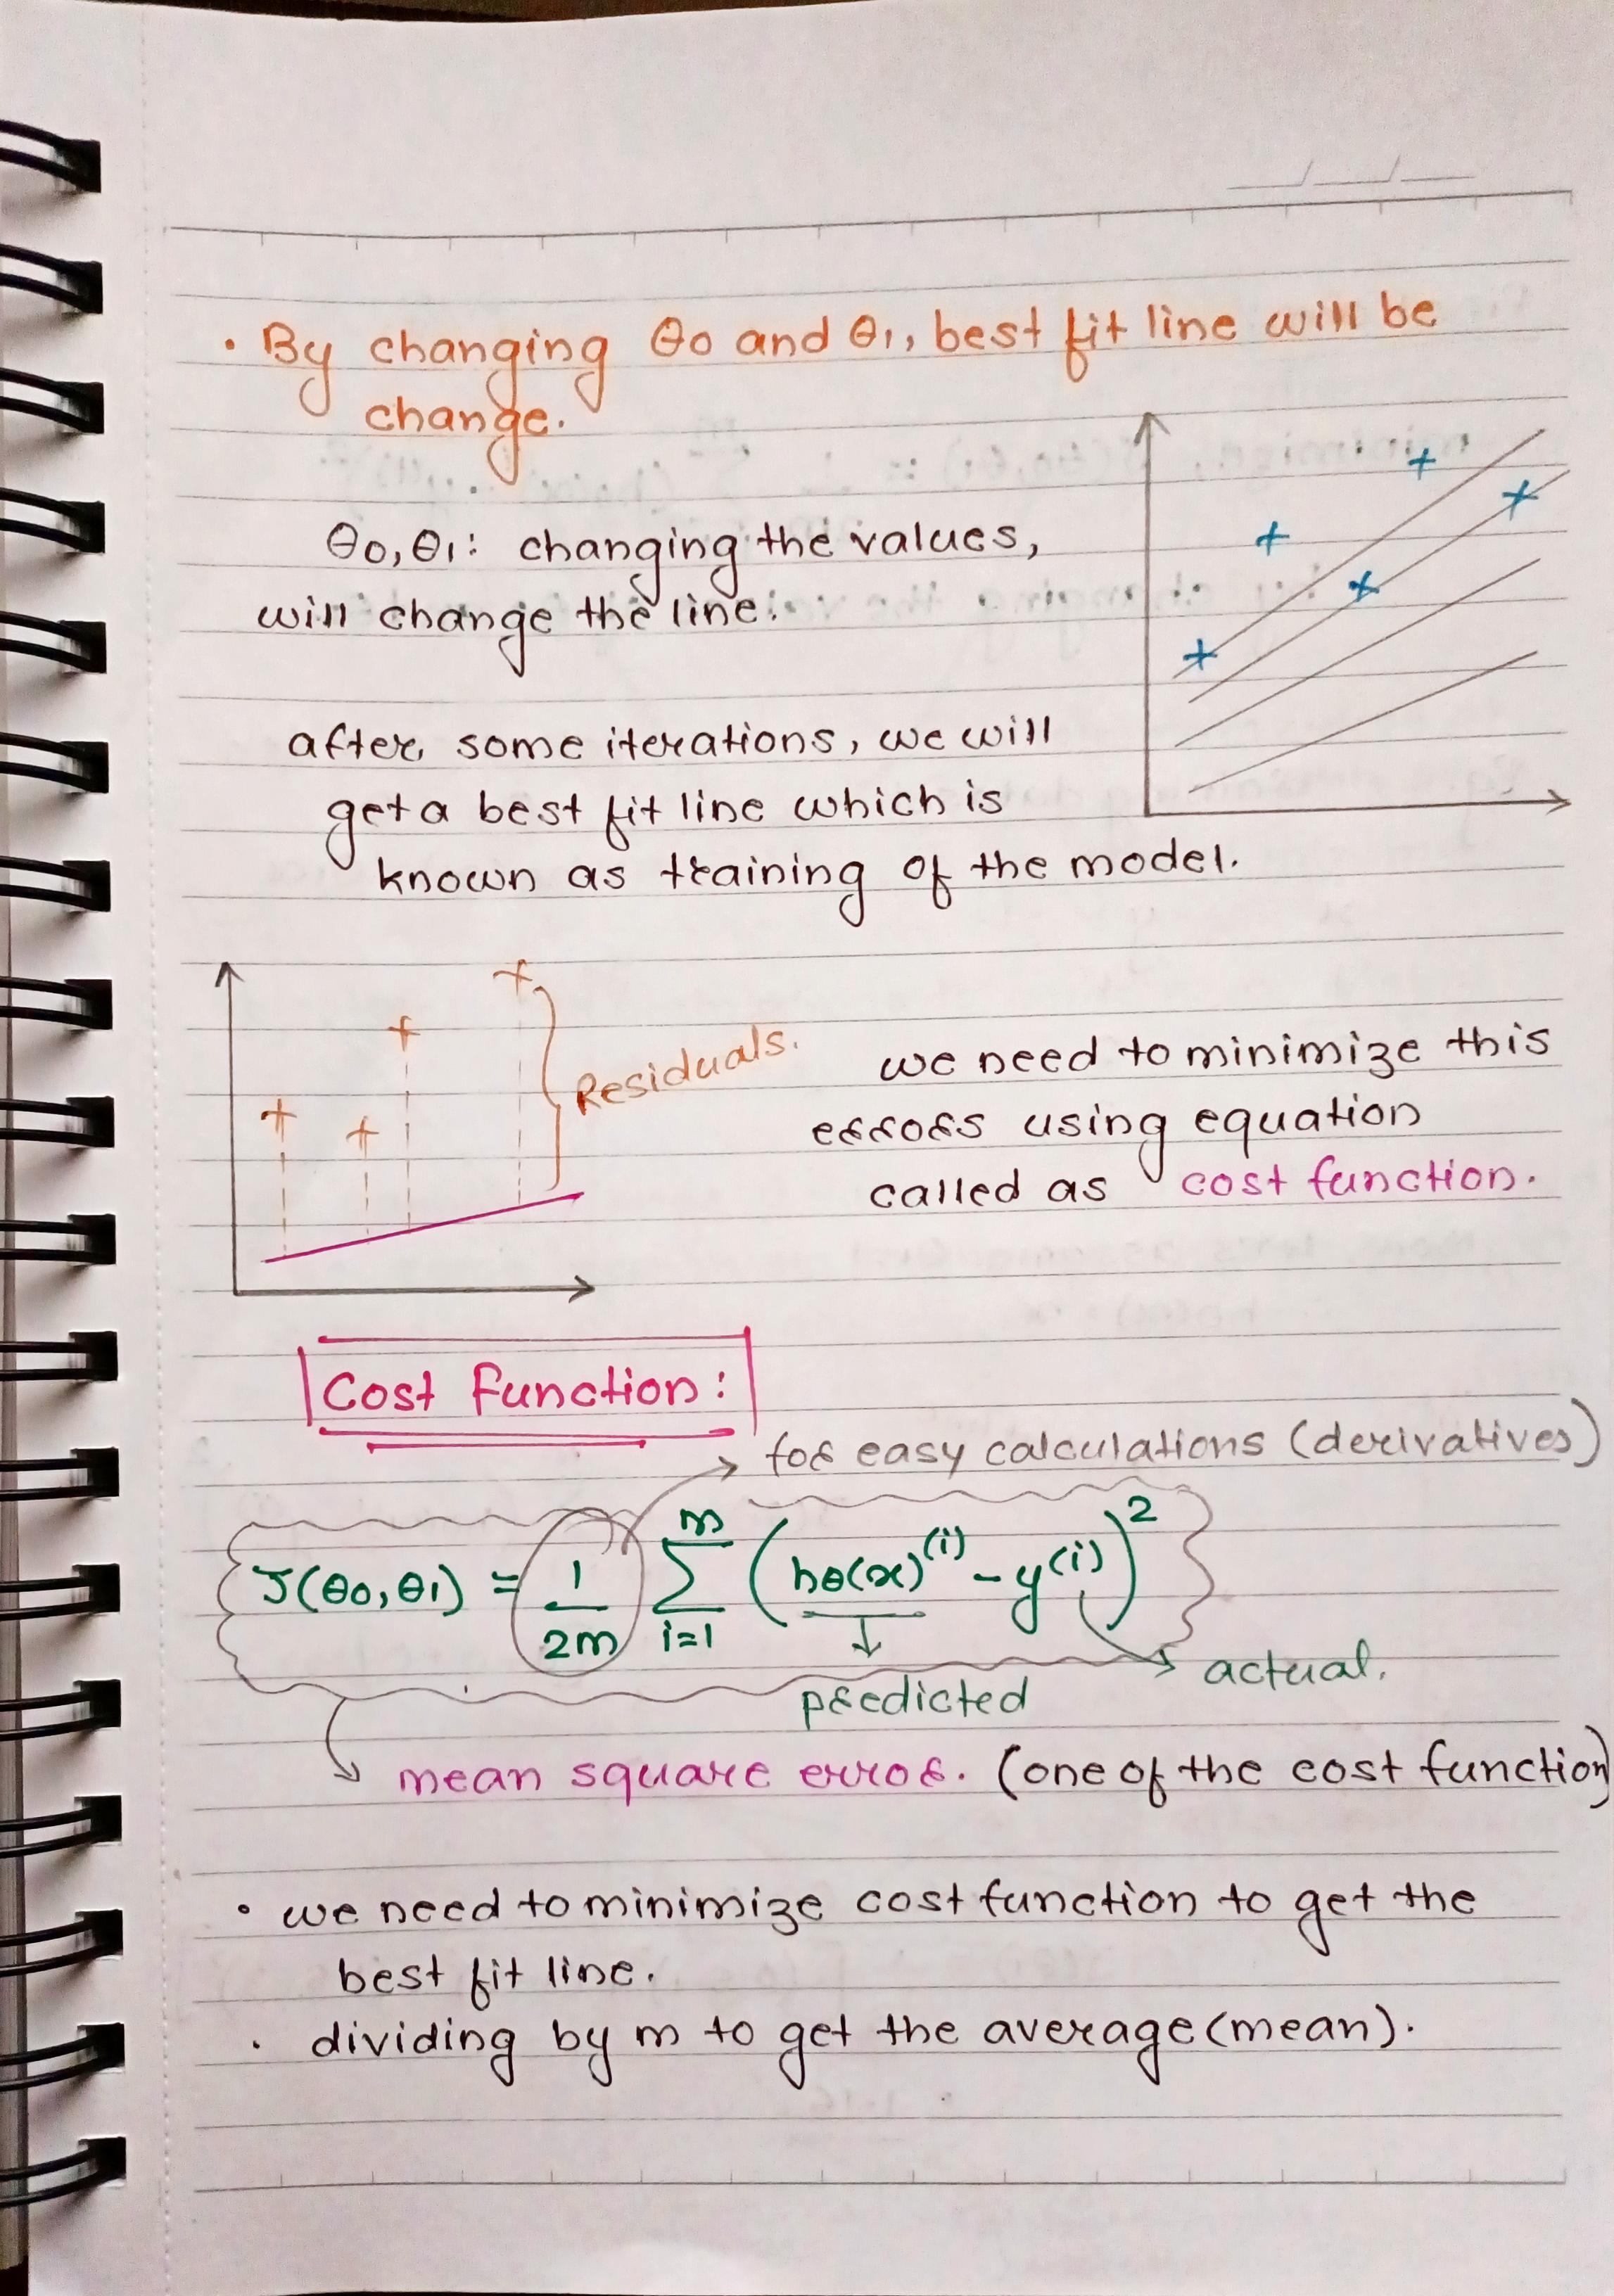 · By changing θ0 and θ1, best fit line will be
change.
θ0, θ1: changing the values,
will change the line.
after some iterations, we will
get a best fit line which is
known as training of the model.
Residuals.
we need to minimize this
errors using equation
called as cost function.
Cost Function:
for easy calculations (derivatives)
J(θ0, θ1) = 1/2m Σ_{i=1}^{m} (hθ(x)^(i) - y^(i))^2
actual.
predicted
mean square error. (one of the cost function)
• we need to minimize cost function to get the
best fit line.
· dividing by m to get the average (mean).